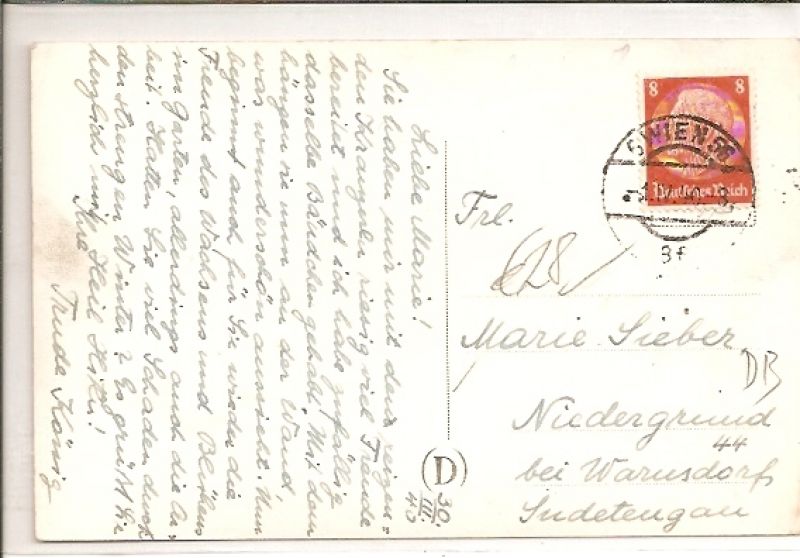 Liebe Marie!
Sie haben mir mit dem reizen-
den Kranzerl riesig viel Freude
bereitet und ich habe zufällig
dasselbe Bändchen gehabt. Mit dem
hängen sie nun an der Wand
was wunderschön aussieht. Nun
beginnt auch für Sie wieder die
Freude des Wachsens und Blühens
im Garten, allerdings auch die Ar-
beit. Hatten Sie viel Schaden durch
den strengen Winter? Es grüßt Sie
herzlich mit Heil Hitler!
Ihre
Trude König
30
III.
40
D
8 8
Deutsches Reich
WIEN 56
3f
Frl.
628
Marie Sieber
DB
Niedergrund
44
bei Warnsdorf
Sudetengau